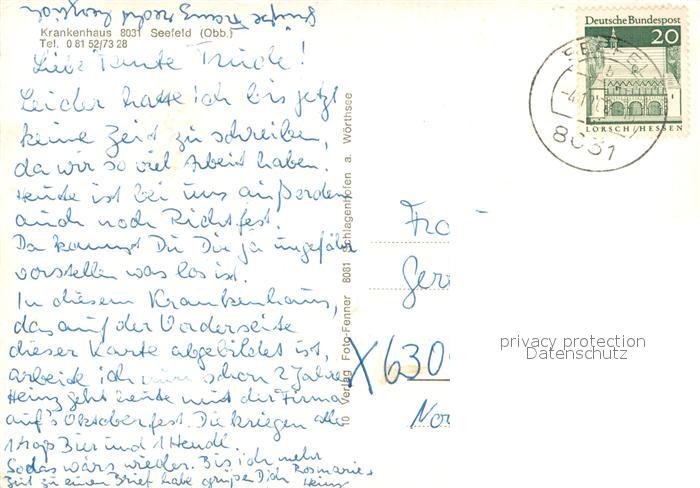 Krankenhaus 8031 Seefeld (Obb.)
Tel. 0 81 52/73 28
Liebe Tante Trude!
Leider hatte ich bis jetzt
keine Zeit zu schreiben,
da wir so viel Arbeit haben.
Heute ist bei uns außerdem
auch noch Richtfest.
Da kannst Du Dir ja ungefähr
vorstellen was los ist.
In diesem Krankenhaus,
das auf der Vorderseite
dieser Karte abgebildet ist,
arbeite ich nun schon 2 Jahre
Heinz geht heute mit der Firma
auf's Oktoberfest. Die kriegen alle
1 Maß Bier und 1 Hendl.
Sodas wärs wieder. Bis ich mehr
Zeit zu einem Brief habe grüßen Dich Rosmarie +
Heinz
10 Verlag Foto-Fenner 8081 Schlagenhofen a. Wörthsee
Deutsche Bundespost
20
LORSCH/HESSEN
SEEFELD
8031
X630
privacy protection
Datenschutz